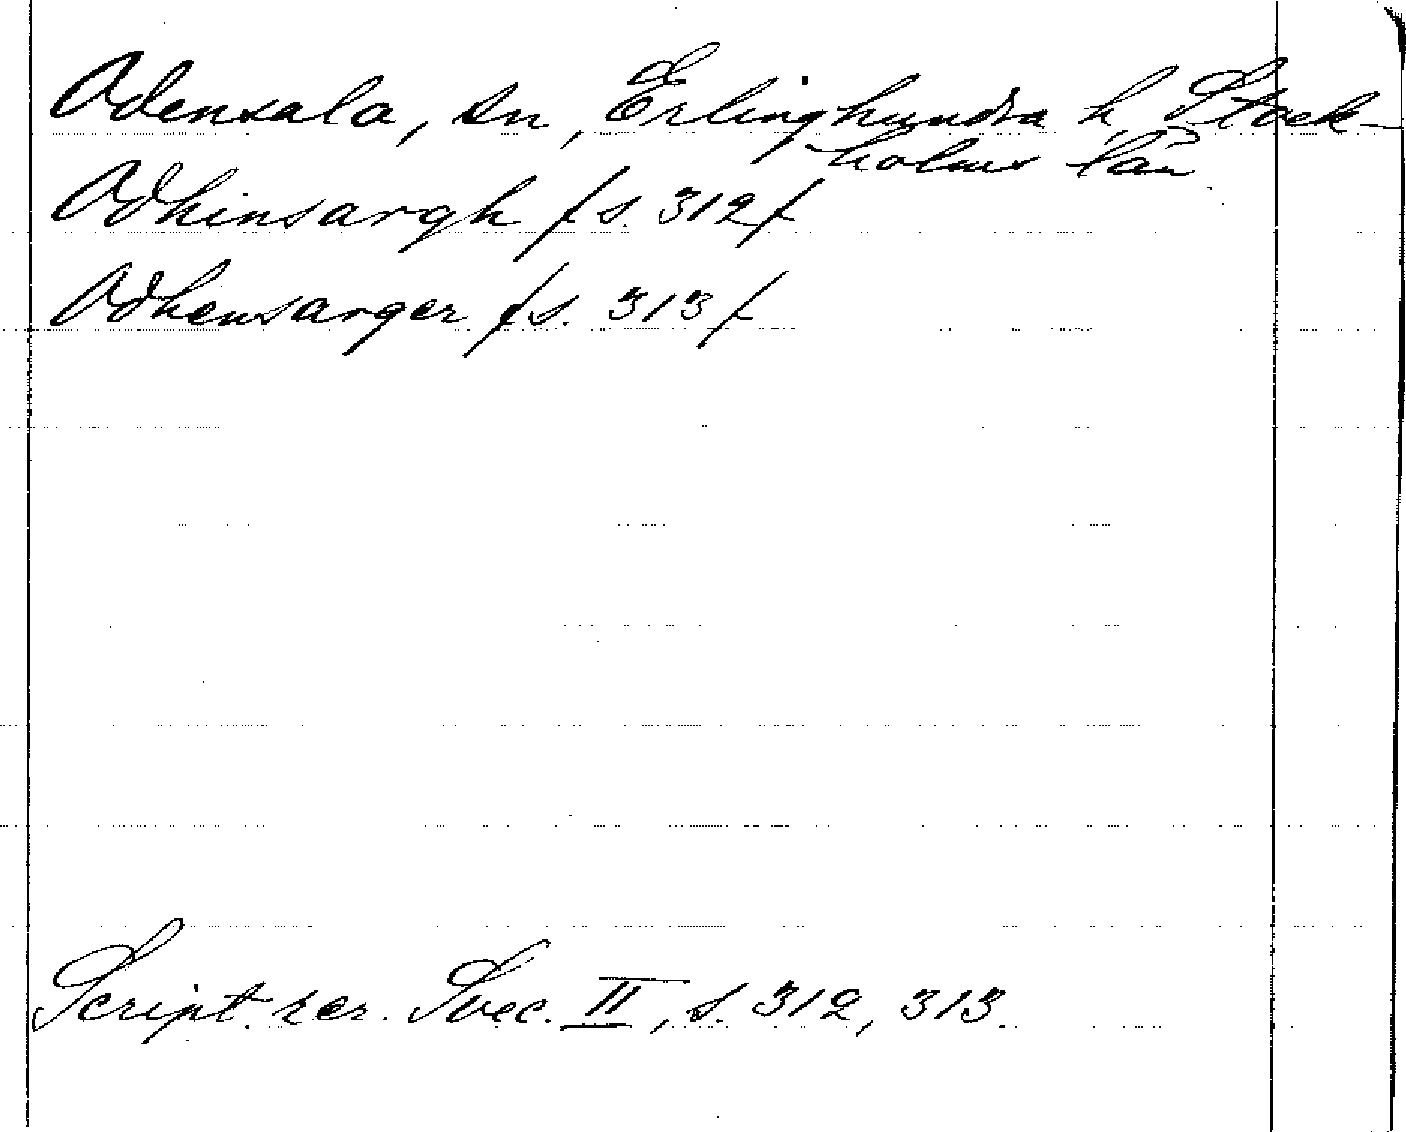 Odensala, sn, Erlinghundra h, Stock-
holms län
Odhinsargh /s. 312/
Odhensarger /s. 313/
Script. rer. Svec. II, s. 312, 313.